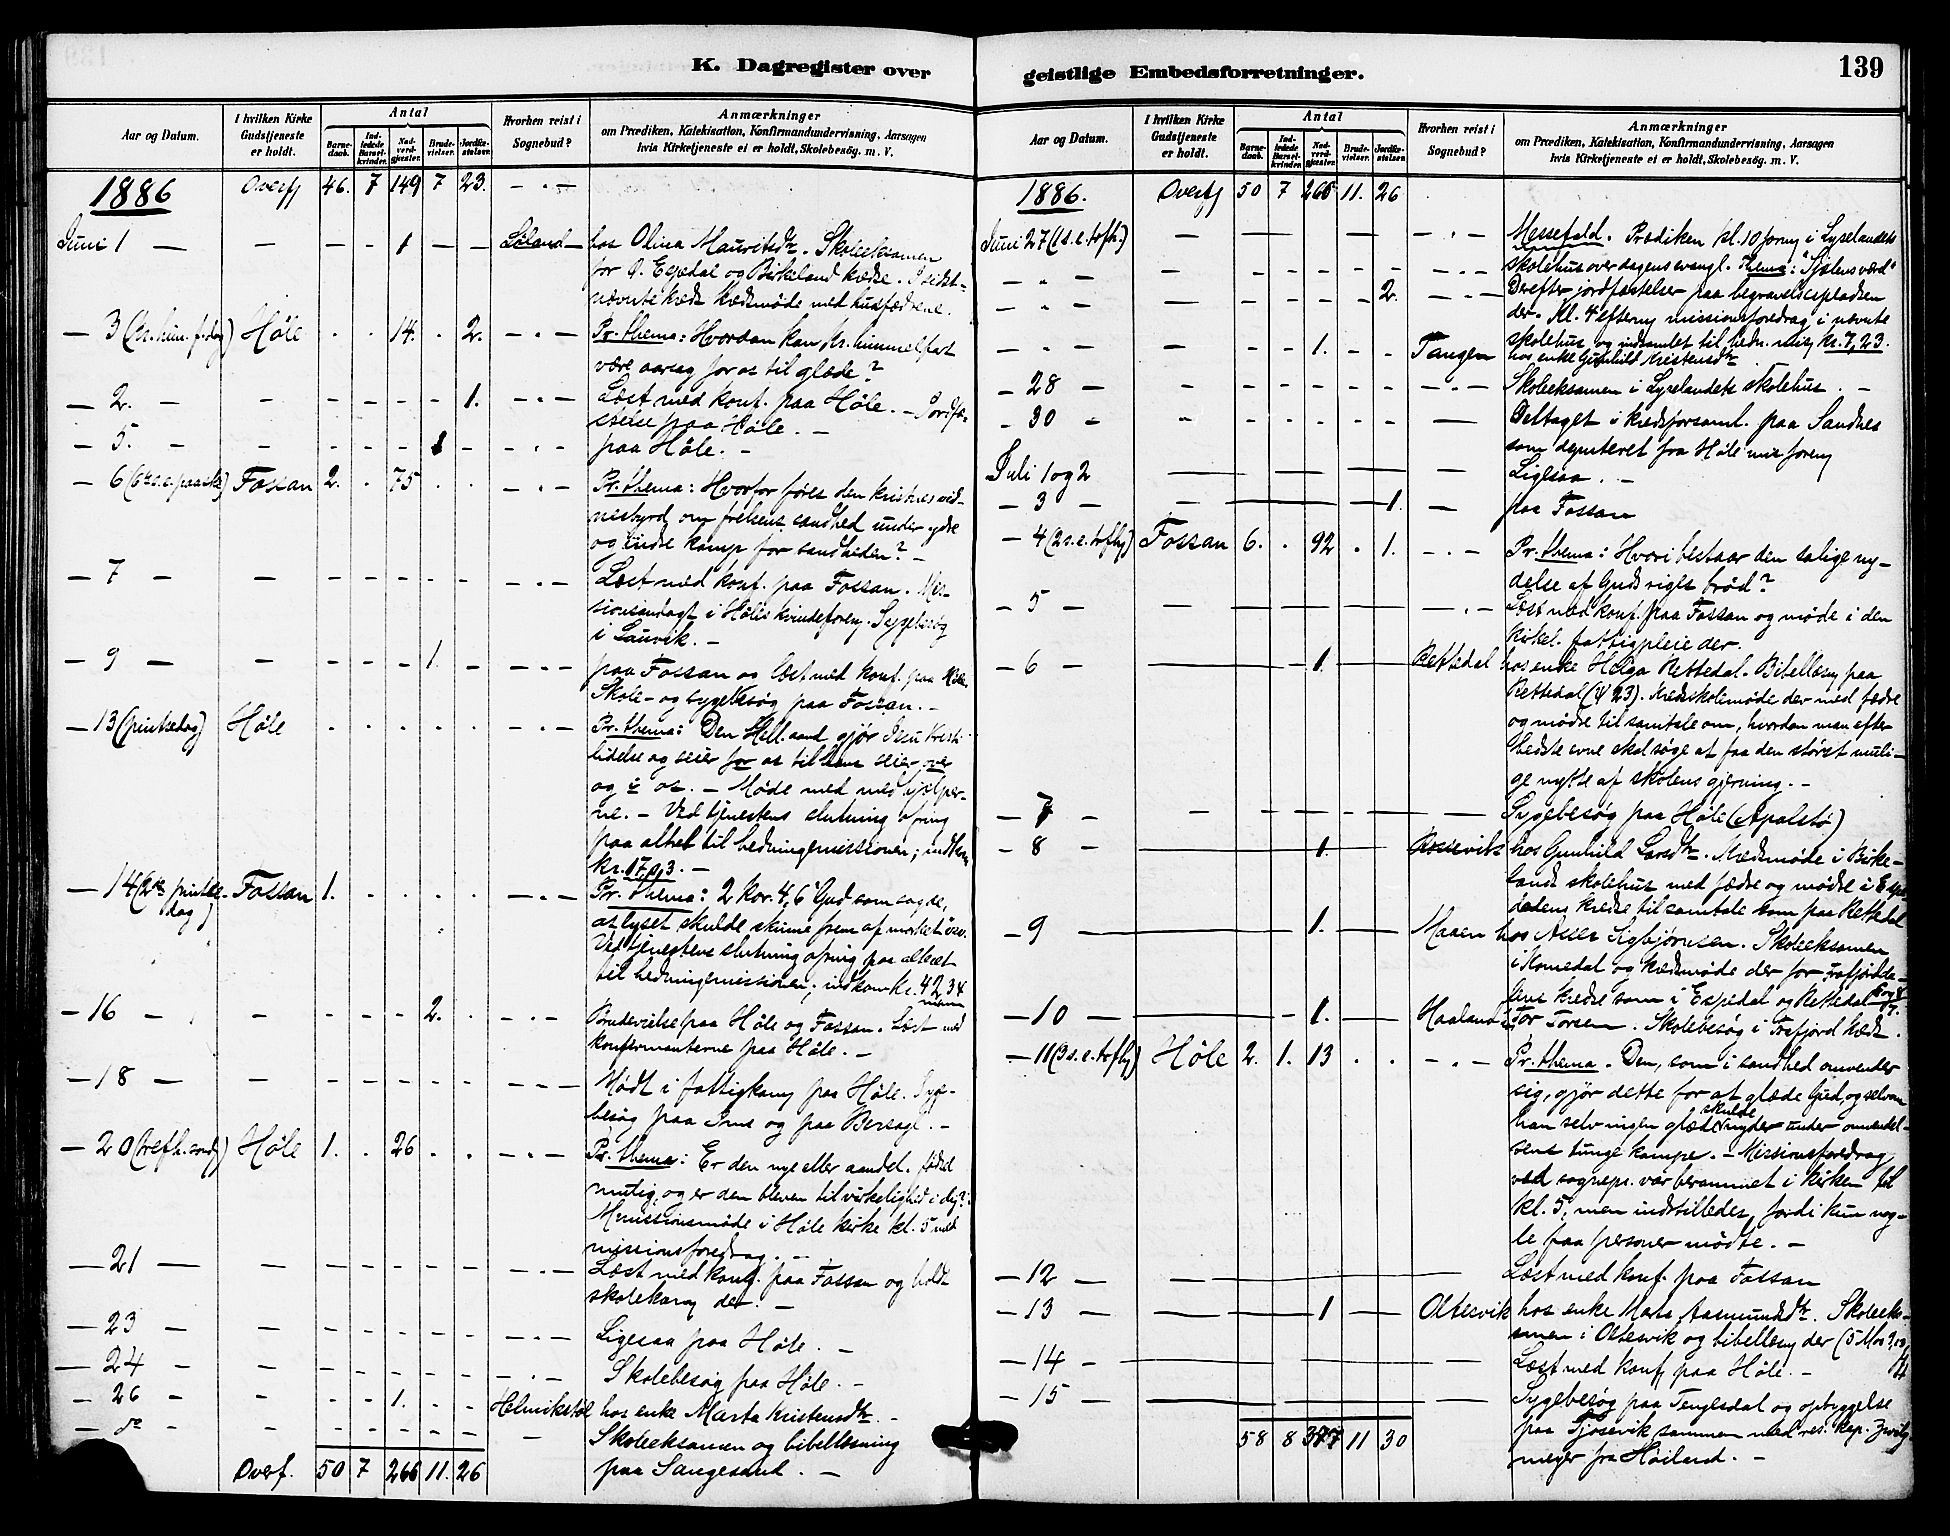 K. Dagregister over
geistlige Embedsforretninger.
139
Aar og Datum.
I hvilken Kirke Gudstjeneste er holdt.
Antal
Barne-daab.
Ind-ledede Barsel-kvinder.
Nad-verd-gjester.
Brude-vielser.
Jordfæ-stelser.
Hvorhen reist i Sognebud?
Anmærkninger
om Prædiken, Katekisation, Konfirmandundervisning, Aarsagen
hvis Kirketjeneste ei er holdt, Skolebesög. m. V.
1886 Overf 46. 7 149 7 23. - " -
Juni 1 — — - - 1 - - Löland hos Olina Mauritsdtr. Skoleeksamen
for Ö. Espedal og Birkeland kreds. I sidst-
nævnte kreds kredsmöde med husfædrene.
— 3 Höle . . 14. . 2. - " - Pr. thema: Hvordan kan Kr. himmelfart
være aarsag for os til glæde?
— 2. - - - - - - 1. - " - Læst med konf. paa Höle. - Jordfæ-
stelse paa Höle. -
— 5. - - - - - 1 - - " - paa Höle. -
— 6 (6te s. e. paaske) Fossan 2. . 75 . . - " - Pr. thema: Hvorfor föres den kristnes vid-
nesbyrd om frelsens sandhed under ydre
og indre kamp for sandheden? -
— 7 - - - - - - - - " - Læst med konf. paa Fossan. Mis-
sionsandagt i Höles kvindeforeng. Sygebesög
i Lauvik. -
— 9 — - - - - 1. - - " - paa Fossan og læst med konf. paa Höle.
Skole- og sygebesög paa Fossan. -
— 13 (pintsedag) Höle . . . . . - " - Pr. thema: Den Hell. aand gjör Jesu Kristi
lidelse og seier for os til hans seier over
og i os. - Möde med medhjælper-
ne. - Ved tjenestens slutning ofring
paa altret til hedningemissionen; indkom
kr. 17,03. -
— 14 (2den pintse-dag) Fossan 1. . . . . - " - Pr. thema: 2 Kor. 4,6 Gud som sagde,
at lyset skulde skinne frem af mörket osv.
Ved tjenestens slutning ofring paa altret
til hedningemissionen; indkom kr. 42,34
— 16 - - - - - 2. . - " - Brudevielse paa Höle og Fossan. Læst med
konfirmanterne paa Höle. -
— 18 — - - - - - - - " - Mödt i fattigkomm. paa Höle. Syge-
besög paa Ims og paa Bersagel. -
— 20 (trefh. sondg) Höle 1. . 26 . . - " - Pr. thema: Er den nye eller aandel. födsel
mutig, og er den bleven til virkelighed i dig?
Missionsmöde i Höle kirke kl. 5 med
missionsforedrag. -
— 21 — - - - - - - - " - Læst med konf. paa Fossan og holdt
skolekomm der. -
— 23 - - - - - - - - " - Ligesaa paa Höle. -
— 24 - - - - - - - - " - Skolebesög paa Höle. -
— 26 - - - - 1. - - Helmikstöl hos enke Marta Kristensdtr. -
— do - - - - - - - — Skoleeksamen og bibellæsning
paa Sangesand. -
Overf. 50 7 266 11. 26
Aar og Datum.
I hvilken Kirke Gudstjeneste er holdt.
Antal
Barne-daab.
Ind-ledede Barsel-kvinder.
Nad-verd-gjester.
Brude-vielser.
Jordfæ-stelser.
Hvorhen reist i Sognebud?
Anmærkninger
om Prædiken, Katekisation, Konfirmandundervisning, Aarsagen
hvis Kirketjeneste ei er holdt, Skolebesög. m. V.
1886. Overf 50 7 266 11. 26
Juni 27 (1 s. e. trefh.) — - - - - - - " - Messefald. Prædiken kl. 10 formg i Lyselandets
- " - - - - - - - - " - skolehus over dagens evangl. Thema: "Sjælens værd"
- " - - - - - - 2. - " - Derefter jordfæstelser paa begravelsespladsen
der. Kl. 4 efterm missionsforedrag i nævnte
skolehus og indsamlet til hedn. miss kr. 7,23.
- " - - - - 1. - - Tangen hos enke Gunhild Kristensdtr
— 28 — - - - - - - - " - Skoleeksamen i Lyselandets skolehus. -
- 30 - - - - - - - — Deltaget i kredsforsaml. paa Sandnes
som deputeret fra Höle misforeng
Juli 1 og 2 — Ligesaa. -
- 3 - — 1. — paa Fossan
— 4 (2 s. e. trefhg) Fossan 6. . 92 . 1. - " - Pr. thema: Hvori bestaar den salige ny-
delse af Guds riges bröd?
— 5 — - " - Læst med konf. paa Fossan og möde i den
kirkel. fattigpleie der.
— 6 — 1. — Rettedal hos enke Helga Rettedal. Bibellæsng paa
Rettedal (ψ 23). Kredsskolemöde der med fædre
og mödre til samtale om, hvordan man efter
bedste evne skal söge at faa den störst muli-
ge nytte af skolens gjerning. -
— 7 — Sygebesög paa Höle (Apalstö)
— 8 — 1. — Rossevik hos Gunhild Larsdtr. Kredsmöde i Birke-
lands skolehus med fædre og mödre i Espe-
dalens kreds til samtale som paa Rettedal
— 9 — 1. — Maaen hos Asser Sigbjörnsen. Skoleeksamen
i Komedal og kredsmöde der for Frafjordda-
lens kreds som i Espedal og Rettedal 6 og 8/7.
— 10 — 1. — Haaland hos Tor Torsen. Skolebesög i Frafjord kreds.
— 11 (3 s. e. trefhg) Höle 2. 1. 13 . . - " - Pr. thema. Den, som i sandhed omvender
sig, gjör dette for at glæde Gud, og selv om
han selv ingen glæde skulde nyder under omvendel-
sens tunge kampe. - Missionsforedrag
ved sognepr. var berammet i kirken til
kl. 5, men indstilledes, fordi kun nog-
le faa personer mödte. -
— 12 — Læst med konf. paa Fossan
— 13 — 1 — Oltesvik hos enke Marta Aasmundsdtr. Skoleeks-
amen i Oltesvik og bibellæsng der (5 Mos
— 14 — Læst med konf. paa Höle. -
— 15 — Sygebesög paa Tengesdal og opbyggelse
paa Tjosevik sammen med res. kap. Zwilg-
meyer fra Höiland. -
58 8 377 11 30